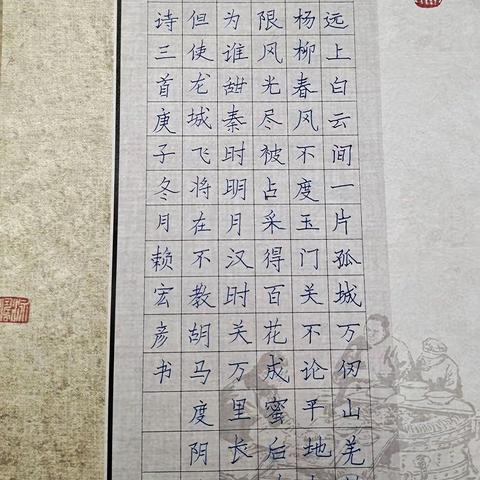 远上白云间一片孤城万仞山羌
杨柳春风不度玉门关不论平地
限风光尽被占采得百花成蜜后
为谁甜秦时明月汉时关万里长
但使龙城飞将在不教胡马度阴
诗三首庚子冬月赖宏彦书